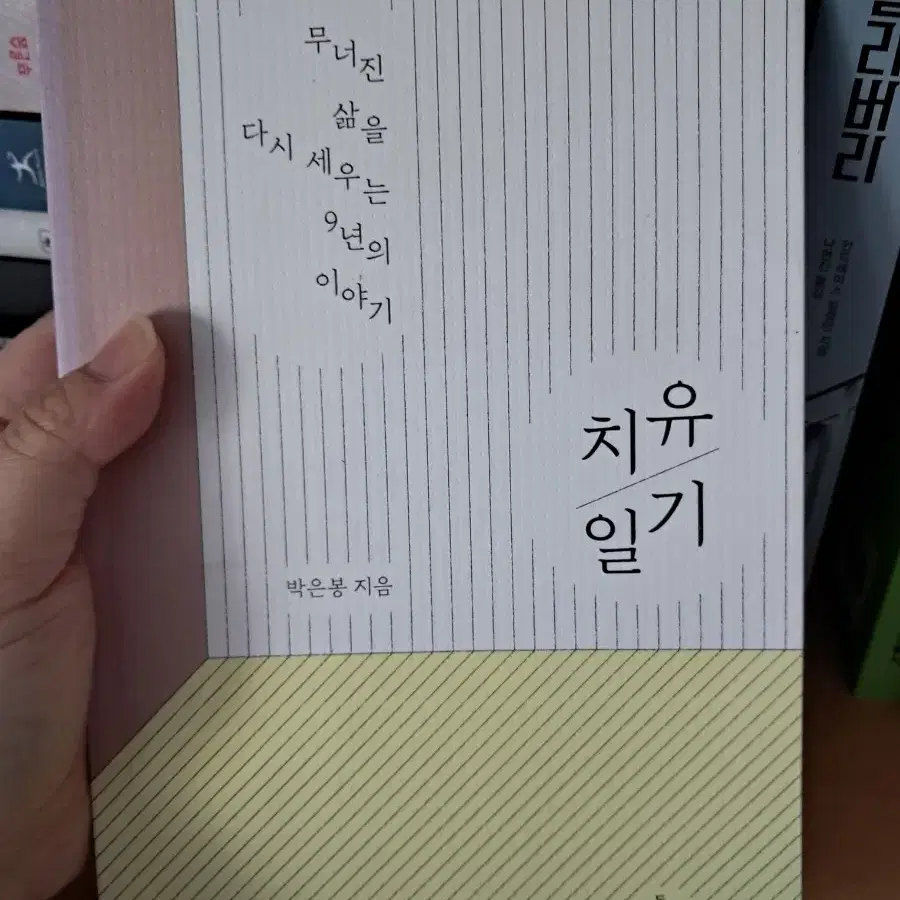 무너진
삶을
다시 세우는
9년의
이야기
치유
일기
박은봉 지음